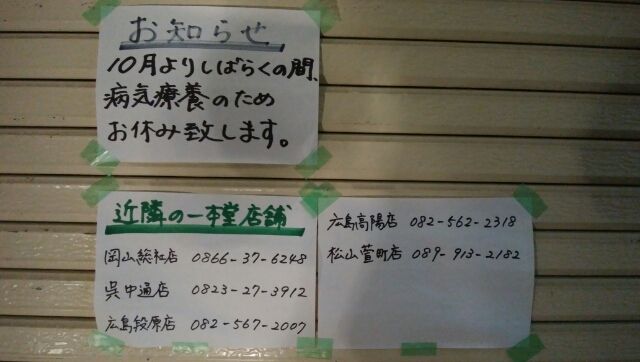 お知らせ
10月よりしばらくの間、
病気療養のため
お休み致します。
近隣の一本堂店舗
岡山総社店 0866-37-6248
呉中通店 0823-27-3912
広島段原店 082-567-2007
広島高陽店 082-562-2318
松山萱町店 089-913-2182